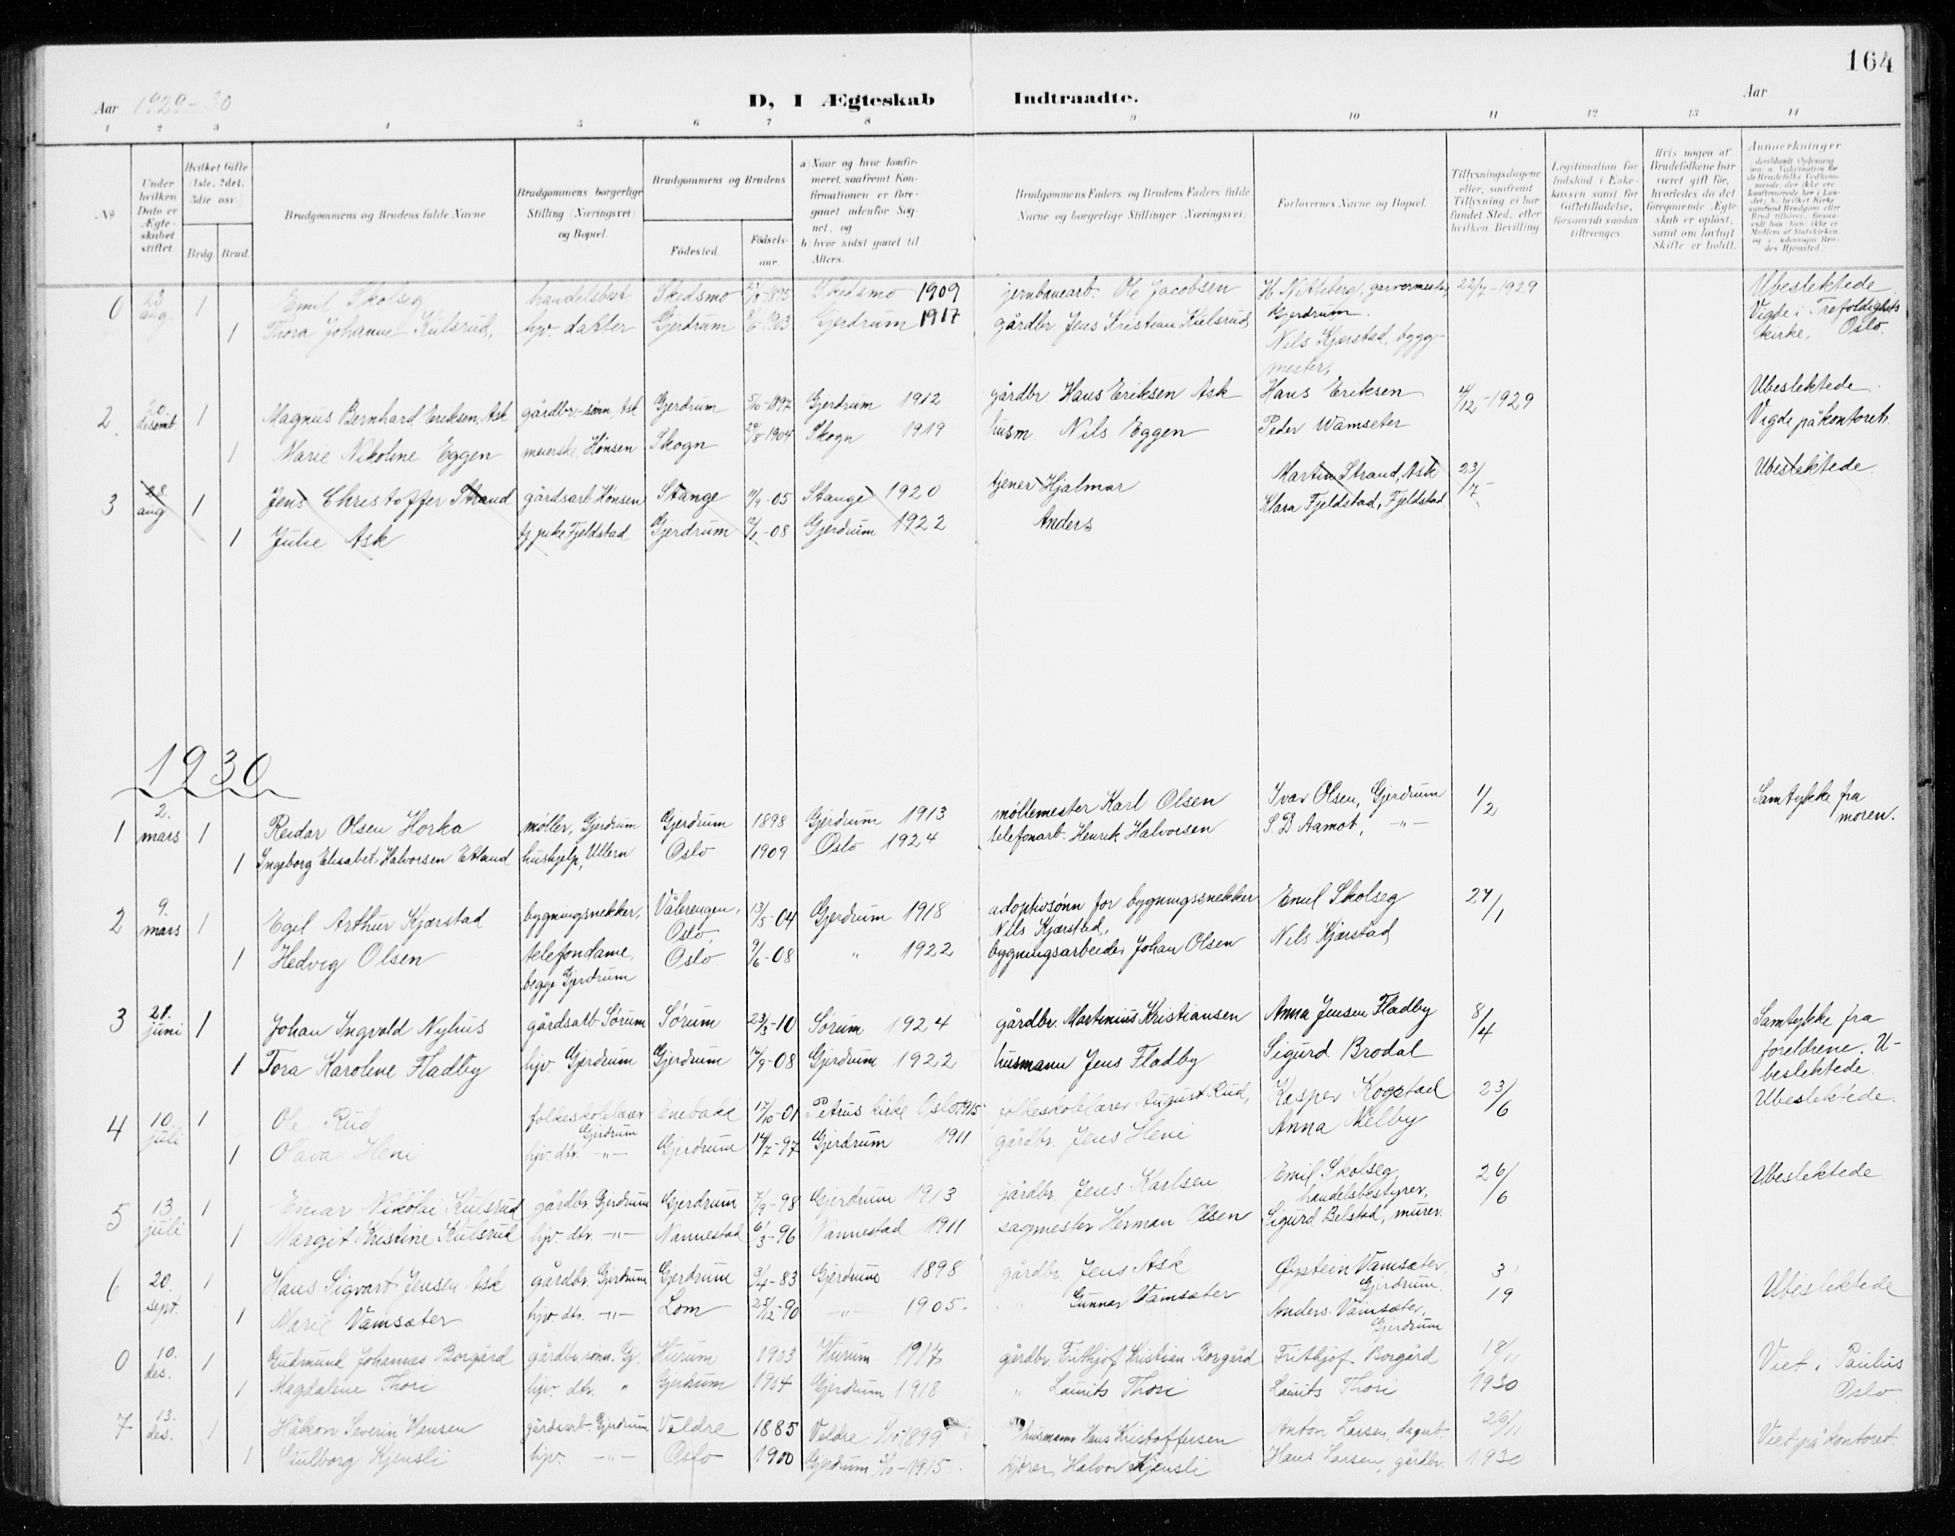 164
Aar 1929-30
D, I Ægteskab Indtraadte.
Aar
1 2 3 4 5 6 7 8 9 10 11 12 13 14
No
Under hvilken Dato er Ægteskabet stiftet.
Hvilket Gifte (1ste, 2det, 3die osv.)
Brdg. Brud.
Brudgommens og Brudens fulde Navne
Brudgommens borgerlige Stilling (Næringsvei) og Bopæl.
Brudgommens og Brudens
Fødested. Fødselsaar.
a) Naar og hvor konfirmeret, saafremt Konfirmationen er foregaaet udenfor Sognet, og
b) hvor sidst gaaet til Alters.
Brudgommens Faders og Brudens Faders fulde Navne og borgerlige Stillinger (Næringsvei).
Forlovernes Navne og Bopæl.
Tillysningsdagene eller, saafremt Tillysning ei har fundet Sted, efter hvilken Bevilling
Legitimation for Indskud i Enkekassen samt for Giftetilladelse, forsaavidt saadan tiltrænges.
Hvis nogen af Brudefolkene har været gift før, hvorledes da det foregaaende Ægteskab er opløst, samt om lovligt Skifte er holdt.
Anmærkninger
0 23 aug. 1 Emil Skolseg handelsbest Skedsmo 1895 Skedsmo 1909 jernbanearb. Ole Jacobsen H. Nitteberg, garvermester, Gjerdrum. 22/7-1929 Ubeslektede
1 Thora Johanne Kulsrud, hjv. datter Gjerdrum 1903 Gjerdrum 1917 gårdbr. Jens Kristian Kulsrud Nils Kjærstad, byggmester, Vigde i Trefoldighetskirke, Oslo.
2 20. desemb 1 Magnus Bernhard Eriksen Ask gårdbr.-sønn, Ask Gjerdrum 5/10-1897 Gjerdrum 1912 gårdbr Hans Eriksen Ask Hans Eriksen 4/12-1929 Ubeslektede.
1 Marie Nikoline Eggen meierske, Hønsen Skogn 29/8-1904 Skogn 1919 husm Nils Eggen Peder Wamseter Vigde på kontoret.
3 28. aug 1 Jens Christoffer Strand gårdsarb Hønsen Stange 14/9-05 Stange 1920 tjener Hjalmar Martin Strand, Ask 23/7- Ubeslektede.
1 Julie Ask tj. pike Fjeldstad Gjerdrum 08 Gjerdrum 1922 Anders Klara Fjeldstad, Fjeldstad
1930
1 2. mars 1 Reidar Olsen Horka møller, Gjerdrum Gjerdrum 1898 Gjerdrum 1913 møllemester Karl Olsen Ivar Olsen, Gjerdrum 1/2 Samtykke fra moren.
1 Ingeborg Elisabet Halvorsen Etland hushjelp, Ullern Oslo 1909 Oslo 1924 telefonarb. Henrik Halvorsen S. D Aamot, -"-
2 9. mars 1 Egil Arthur Kjærstad bygningsnekker, Vålerengen, Oslo 13/5-04 Gjerdrum 1918 adoptivsønn for bygningssnekker Nils Kjærstad, Emil Skolseg 27/1
1 Hedvig Olsen telefondame, begge Gjerdrum Oslo 9/6-08 " 1922 bygningsarbeider Johan Olsen Nils Kjærstad
3 21. juni 1 Johan Ingvald Nyhus gårdsarb Sørum Sørum 23/3-10 Sørum 1924 gårdbr. Martinius Kristiansen Anna Jensen Fladby 8/4 Samtykke fra foreldrene. U-
1 Tora Karoline Fladby hjv. Gjerdrum Gjerdrum 17/9-08 Gjerdrum 1922 husmann Jens Fladby Sigurd Brodal beslektede.
4 10. juli 1 Ole Rud folkeskolelærer Gjerdrum Enebakk 17/10-01 Petrus kirke Oslo 1915 folkeskolelærer August Rud, Kasper Kogstad 23/6 Ubeslektede.
1 Olava Heni hjv. dtr. -"- Gjerdrum 14/7-97 Gjerdrum 1911 gårdbr. Jens Heni Anna Melby
5 13 juli 1 Einar Nikolai Kulsrud gårdbr. Gjerdrum Gjerdrum 7/9-98 Gjerdrum 1913 gårdbr. Jens Karlsen Emil Skolseg, handelsbestyrer, 26/6 Ubeslektede
1 Margit Kristine Kulsrud hjv. dtr. -"- Nannestad 6/3-96 Nannestad 1911 sagmester Herman Olsen Sigurd Belstad, murer.
6 20. sept. 1 Hans Sigvart Jensen Ask gårdbr. Gjerdrum Gjerdrum 3/4-83 Gjerdrum 1898 gårdbr. Jens Ask Øystein Vamsæter, Gjerdrum. 3 Ubeslektede
1 Marie Vamsæter hjv. dtr. -"- Lom 25/12-90 -"- 1905. " Gunnar Vamsæter Anders Vamsæter, Gjerdrum 19
0 10. des. 1 Gudmund Johannes Borgård gårdbr. sønn. Gj. Hurum 1903 Hurum 1917 gårdbr. Frithjof Kristian Borgård Frithjof Borgård 18/11 Viet i Paulus
1 Magdalene Thori hjv. dtr. " Gjerdrum 1904 Gjerdrum 1918 " Laurits Thori Laurits Thori 1930 Oslo
7 13. des. 1 Håkon Severin Hansen gårdsarb. Gjerdrum Veldre 1885 Veldre 1899 husmann Hans Kristoffersen Anton Larsen, dagarb. 26/11 Viet på kontoret.
1 Gulborg Kjensli hjv. -"- Oslo 1900 Gjerdrum 1915. kjører Halvor Kjensli Hans Larsen, gårdbr. 1930